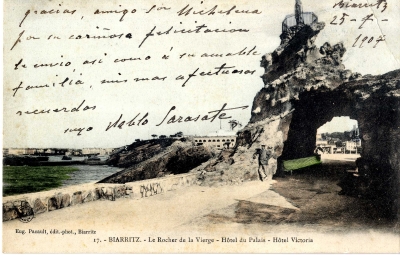 gracias, amigo Don Michelena
por su cariñosa felicitacion
le envio asi como à su amable
familia, mis mas afectuosos
recuerdos
suyo Pablo Sarasate
Biarritz
25-7-
1907
Eug. Pacault, édit.-phot., Biarritz
17. - BIARRITZ. - Le Rocher de la Vierge - Hôtel du Palais - Hôtel Victoria